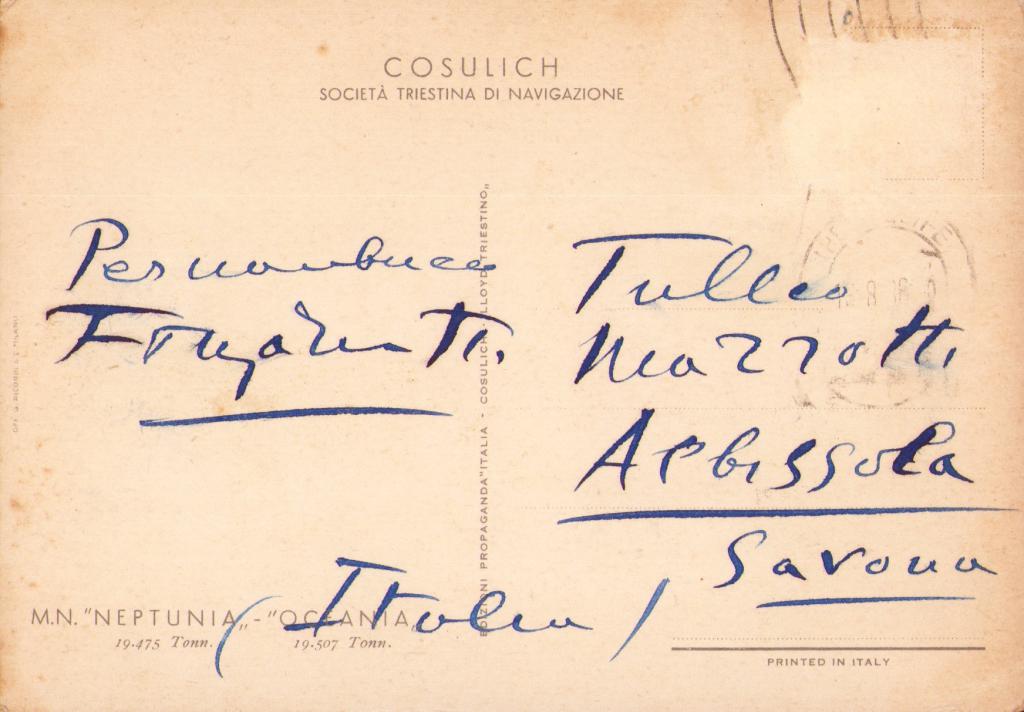 COSULICH
SOCIETÀ TRIESTINA DI NAVIGAZIONE
Pernambuco
EDIZIONI PROPAGANDA "ITALIA - COSULICH - LLOYD TRIESTINO„
Tullio
Mazzotti
Albissola
Savona
(Italia)
M.N. "NEPTUNIA„ - "OCEANIA„
19.475 Tonn. 19.507 Tonn.
PRINTED IN ITALY